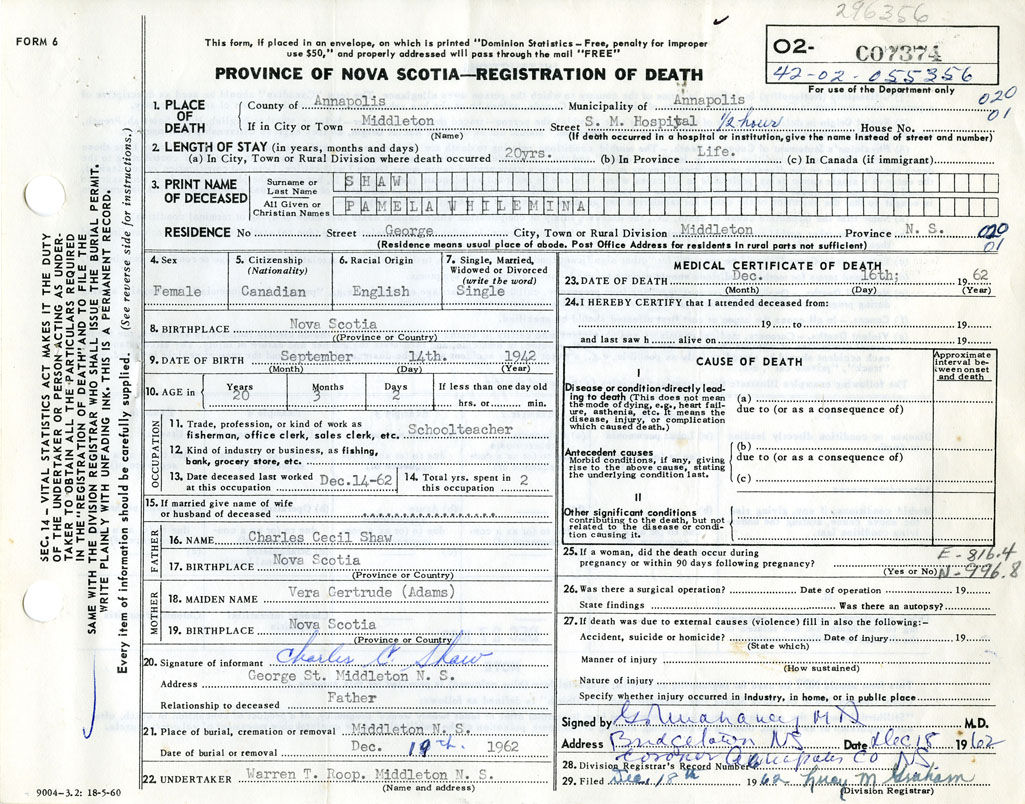 296356
FORM 6
This form, if placed in an envelope, on which is printed "Dominion Statistics – Free, penalty for improper
use $50," and properly addressed will pass through the mail "FREE"
PROVINCE OF NOVA SCOTIA—REGISTRATION OF DEATH
02- CO7374
42-02-055356
For use of the Department only
020
01
1. PLACE OF DEATH
County of Annapolis Municipality of Annapolis
If in City or Town Middleton Street S. M. Hospital 1/2 hour House No.
(Name) (If death occurred in a hospital or institution, give the name instead of street and number)
2. LENGTH OF STAY (in years, months and days)
(a) In City, Town or Rural Division where death occurred 20yrs. (b) In Province Life. (c) In Canada (if immigrant)
3. PRINT NAME OF DECEASED
Surname or Last Name SHAW
All Given or Christian Names PAMELA WHILEMINA
RESIDENCE No Street George City, Town or Rural Division Middleton Province N. S. 020
(Residence means usual place of abode. Post Office Address for residents in rural parts not sufficient) 01
4. Sex Female
5. Citizenship (Nationality) Canadian
6. Racial Origin English
7. Single, Married, Widowed or Divorced (write the word) Single
8. BIRTHPLACE Nova Scotia
(Province or Country)
9. DATE OF BIRTH September 14th. 1942
(Month) (Day) (Year)
10. AGE in Years 20 Months 3 Days 2 If less than one day old
hrs. or min.
OCCUPATION
11. Trade, profession, or kind of work as
fisherman, office clerk, sales clerk, etc. Schoolteacher
12. Kind of industry or business, as fishing,
bank, grocery store, etc.
13. Date deceased last worked at this occupation Dec.14-62
14. Total yrs. spent in this occupation 2
15. If married give name of wife
or husband of deceased
FATHER
16. NAME Charles Cecil Shaw
17. BIRTHPLACE Nova Scotia
(Province or Country)
MOTHER
18. MAIDEN NAME Vera Gertrude (Adams)
19. BIRTHPLACE Nova Scotia
(Province or Country)
20. Signature of informant Charles C. Shaw
Address George St. Middleton N. S.
Relationship to deceased Father
21. Place of burial, cremation or removal Middleton N. S.
Date of burial or removal Dec. 19th. 1962
22. UNDERTAKER Warren T. Roop. Middleton N. S.
(Name and address)
MEDICAL CERTIFICATE OF DEATH
23. DATE OF DEATH Dec. 16th: 1962
(Month) (Day) (Year)
24. I HEREBY CERTIFY that I attended deceased from:
19 to 19
and last saw h alive on 19
CAUSE OF DEATH
Approximate interval between onset and death
I
Disease or condition directly leading to death (This does not mean the mode of dying, e.g., heart failure, asthenia, etc. It means the disease, injury, or complication which caused death.)
(a)
due to (or as a consequence of)
Antecedent causes
Morbid conditions, if any, giving rise to the above cause, stating the underlying condition last.
(b)
due to (or as a consequence of)
(c)
II
Other significant conditions
contributing to the death, but not related to the disease or condition causing it.
25. If a woman, did the death occur during
pregnancy or within 90 days following pregnancy?
(Yes or No)
E-816.4
N-996.8
26. Was there a surgical operation? Date of operation 19
State findings Was there an autopsy?
27. If death was due to external causes (violence) fill in also the following:-
Accident, suicide or homicide? Date of injury 19
(State which)
Manner of injury
(How sustained)
Nature of injury
Specify whether injury occurred in industry, in home, or in public place
Signed by M D M.D.
Address Bridgetown NS Date Dec 18 1962
Coroner Annapolis Co N.S.
28. Division Registrar's Record Number
29. Filed Dec. 18th 1962 Lucy M. Graham
(Division Registrar)
SEC. 14 – VITAL STATISTICS ACT MAKES IT THE DUTY
OF THE UNDERTAKER OR PERSON ACTING AS UNDER-
TAKER TO OBTAIN ALL THE PARTICULARS REQUIRED
IN THE "REGISTRATION OF DEATH" AND TO FILE THE
SAME WITH THE DIVISION REGISTRAR WHO SHALL ISSUE THE BURIAL PERMIT.
WRITE PLAINLY WITH UNFADING INK. THIS IS A PERMANENT RECORD.
Every item of information should be carefully supplied. (See reverse side for instructions.)
9004-3.2: 18-5-60